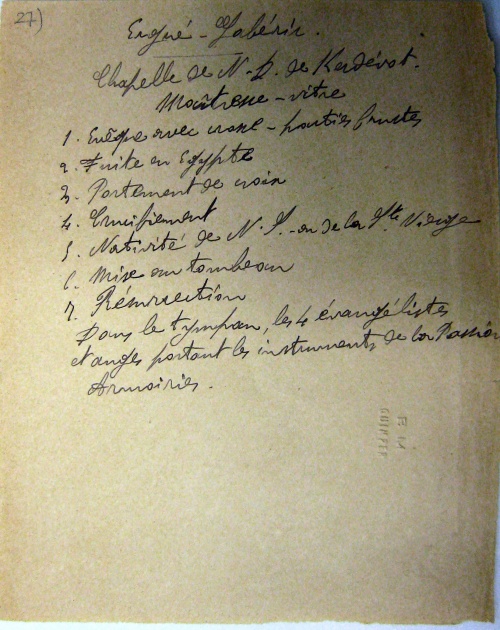 27)
Ergué - Gabéric.
Chapelle de N. D. de Kerdévot.
Maîtresse - vitre
1. Evêque avec crosse - parties frustes
2. Fuite en Egypte
3. Portement de croix
4. Crucifiement
5. Nativité de N. S. ou de la Ste Vierge
6. Mise au tombeau
7. Résurrection
Dans le tympan, les 4 évangélistes
et anges portant les instruments de la Passion
Armoiries.
QUIMPER